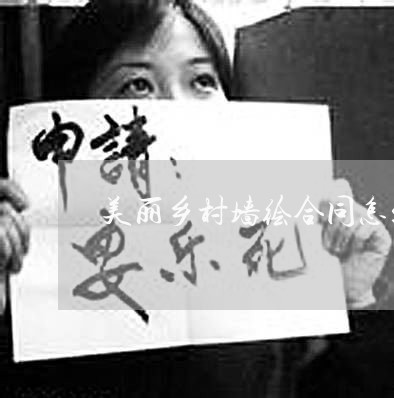 申請：
美丽乡村墙绘合同怎
安乐死